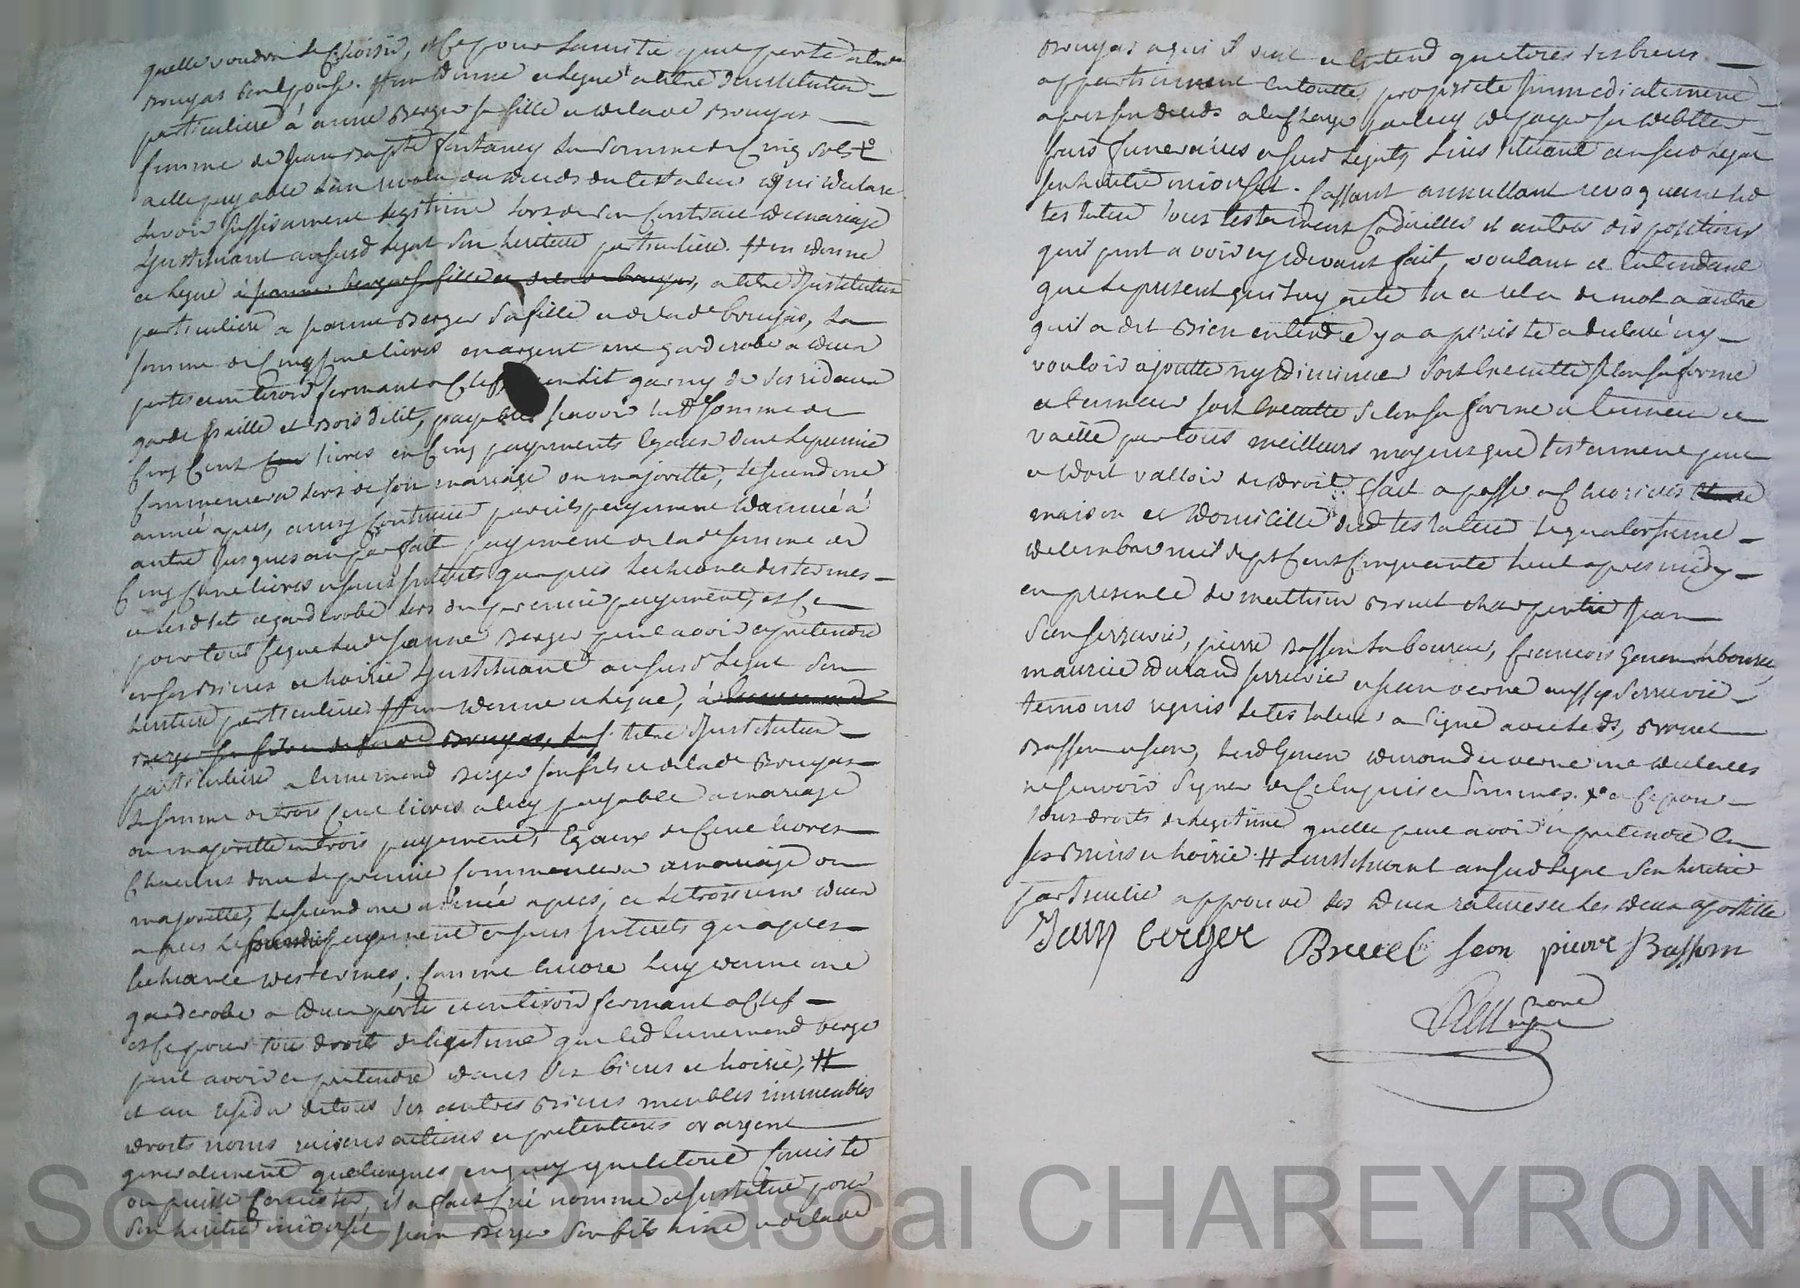 quelle voudra de choisir, et ce pour lamitié quil porte a lad
Brouyas son Epouse. Item donne et legue a titre dinstitution
particuliere à anne Berger sa fille et de lade Brouyas
femme de Jean Bapte fontaney la somme de Cinq sols
a elle payable dans du deceds du testateur qui declare
lavoir suffisament legitimé lors de son Contract de mariage
Linstituant ausurd legat son heritiere particuliere. Item donne
et legue à Jeanne berger sa fille et de lade brouyas, a titre dinstitution
particuliere a Jeanne Berger sa fille et de lade brouyas, la
somme de Cinq Cent livres en argent une garderobe a deux
portes et un tiroir fermant a Clef, un lit garny de ses rideaux
garde paille et Bois de lit, payable scavoir lade somme de
Cinq Cent livres en Cinq payements Egaux dont le premier
Commencera lors de son mariage ou majoritté, le second une
année apres, ainsy Continuer pareils payement dannée à
autre jusques au parfait payement de lade somme de
Cinq Cent livres et sans interets quapres lecheance des termes
et led lit et garderobe lors du premier payement, et Ce
pour tout ce que lade Jeanne Berger peut avoir et pretendre
en ses Biens et hoirie Linstituant ausurd legat son
heritiere particuliere Item donne et legue, à
Berger son fils et de lade Brouyas, titre dinstitution
particuliere a Ennemond Berger son fils et de lade Brouyas
la somme de trois Cent livres a luy payable a mariage
ou majoritté en trois payements Egaux de Cent livres
Chacuns dont le premier Commencera a mariage ou
majoritté, le second une année apres, et le troisieme deux
apres le payement et sans interets quapres
lecheance des termes, Comme Encore luy donne une
garderobe a deux porte et un tiroir fermant a Clef
et Ce pour tous droits de legitime que led Ennemond berger
peut avoir et pretendre dans ses biens et hoirie, #
et au residu de tous ses autres Biens meubles immeubles
droits noms raisons actions et pretentions or argent
generalement quelconques en quoy que le tout Consiste
ou puisse Consister, il a fait Créé nommé et institué pour
son heritier universel Jean Berger son fils ainé et de lade
Brouyas a qui il veut et entend que tous ses biens
appartiennent en toutte proprieté immediatement
apres son deceds a la Charge par luy de payer ses dettes
frais funeraires et susd legats, Linstituant ausurd legat
son heritier universel. Cassant annullant revoquant led
testateur tous testament Codicilles et autres dispositions
quil peut avoir cy devant fait, voulant et Entendant
que le present quil luy a eté lu et relu de mot a autre
quil a dit Bien entendre y a persisté a declaré ny
vouloir ajoutter ny diminuer sort Executté selon sa forme
et teneur sort Executté selon sa forme et teneur et
vaille par tous meilleurs moyens que testament peut
et doit valloir de droit. fait et passé a
maison et domicille dud testateur le quatorzieme
decembre mil sept Cent Cinquante huit apres midy
en presence de mathieu Bruel charpentier Jean
Seon serrurier, pierre Basson laboureur, francois Genon laboureur,
maurice durand serrurier et Jean verne aussy serrurier
temoins requis le testateur a signé avec leds Bruel
Basson et seon, lesd Genon durand et verne ne declarés
ne scavoir signer de Ce enquis et sommés. et Ce pour
tous droits de legitime quelle peut avoir et pretendre En
ses Biens et hoirie # Linstituant ausurd legat son heritier
particulier approuvé les deux ratures et les deux apostille
Jean berger Bruel seon pierre Basson
Source AD Pascal CHAREYRON